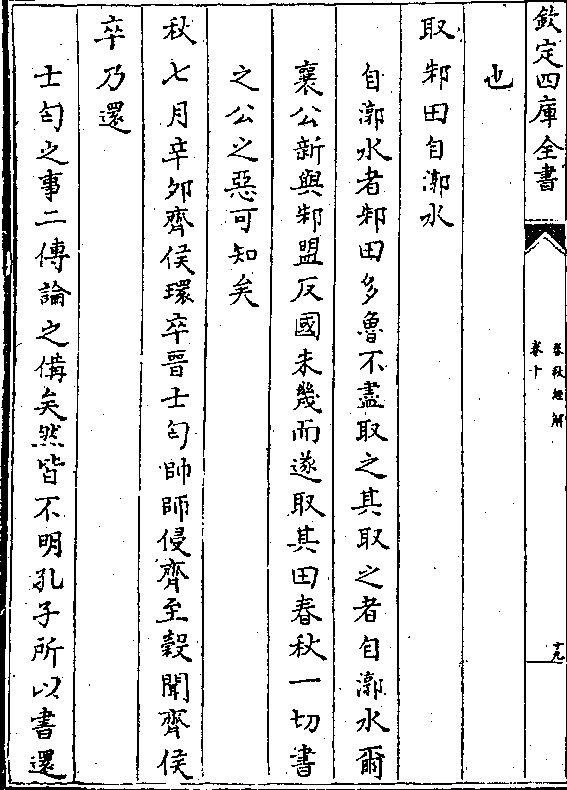 欽定四庫全書
春秋經解
卷十
也
取邾田自漷水
自漷水者邾田多魯不盡取之其取之者自漷水爾
襄公新與邾盟反國未幾而遂取其田春秋一切書
之公之惡可知矣
秋七月辛卯齊侯環卒晉士匄帥師侵齊至穀聞齊侯
卒乃還
士匄之事二傳論之備矣然皆不明孔子所以書還